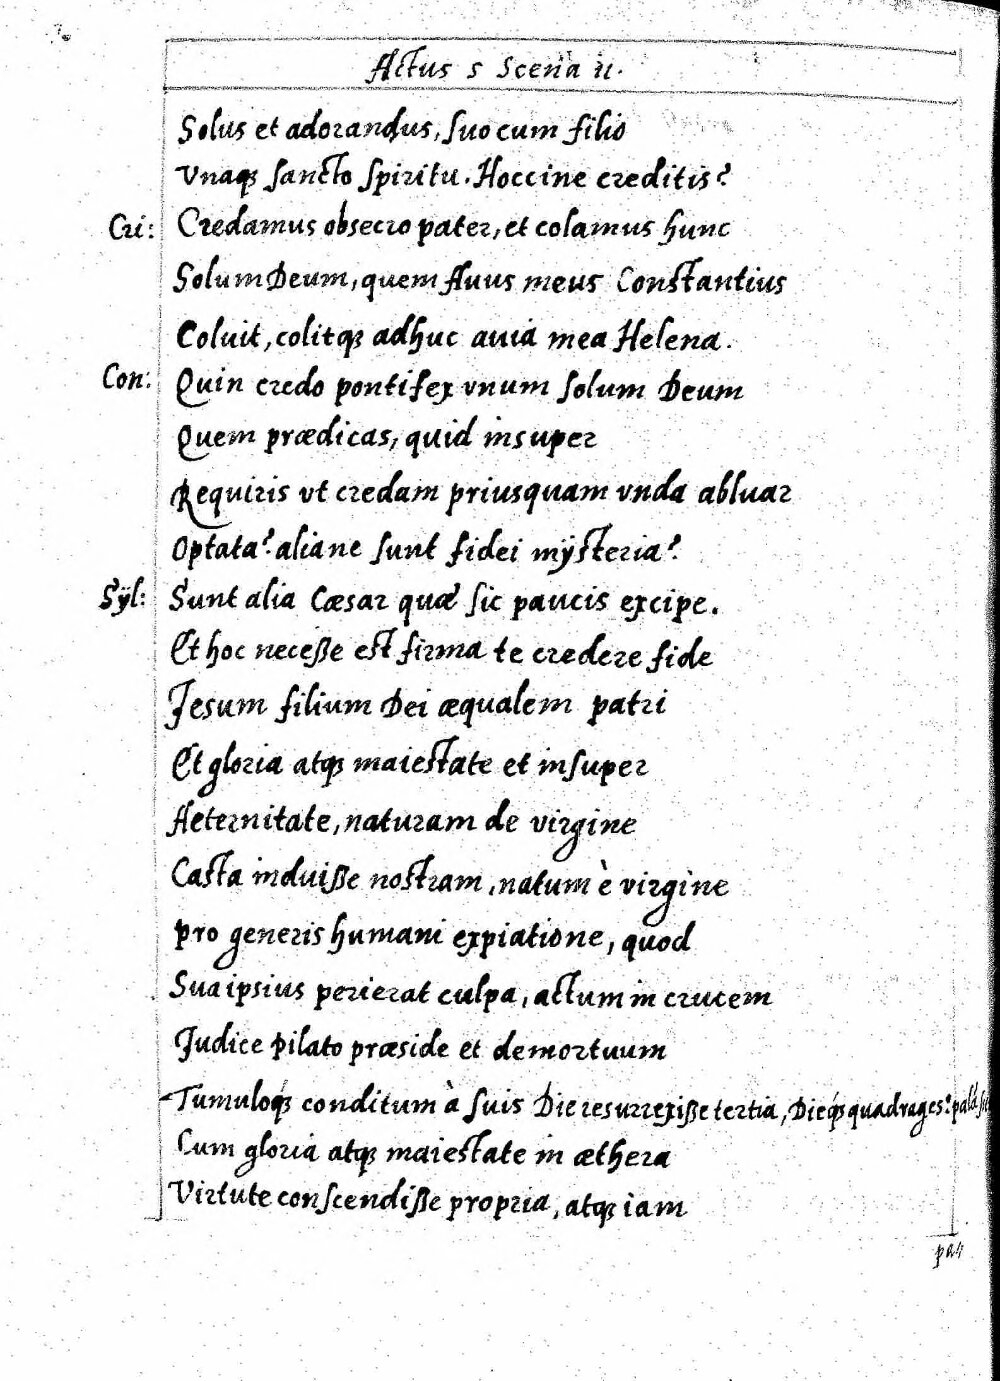 Actus 5 Scena 11.
Solus et adorandus, suo cum filio
Vnaq; sancto spiritu. Hoccine creditis?
Cri: Credamus obsecro pater, et colamus hunc
Solum Deum, quem Auus meus Constantius
Coluit, colitq; adhuc auia mea Helena.
Con: Quin credo pontifex vnum solum Deum
Quem prædicas, quid insuper
Requiris vt credam priusquam vnda abluar
Optata? aliane sunt fidei mÿsteria?
Sÿl: Sunt alia Cæsar quæ sic paucis excipe.
Et hoc necesse est firma te credere fide
Jesum filium Dei æqualem patri
Et gloria atq; maiestate et insuper
Aeternitate, naturam de virgine
Casta induisse nostram, natum è virgine
pro generis humani expiatione, quod
Sua ipsius perierat culpa, actum in crucem
Judice pilato præside et demortuum
Tumuloq; conditum à suis Die resurrexisse tertia, Dieq; quadrages:
Cum gloria atq; maiestate in æthera
Virtute conscendisse propria, atq; iam